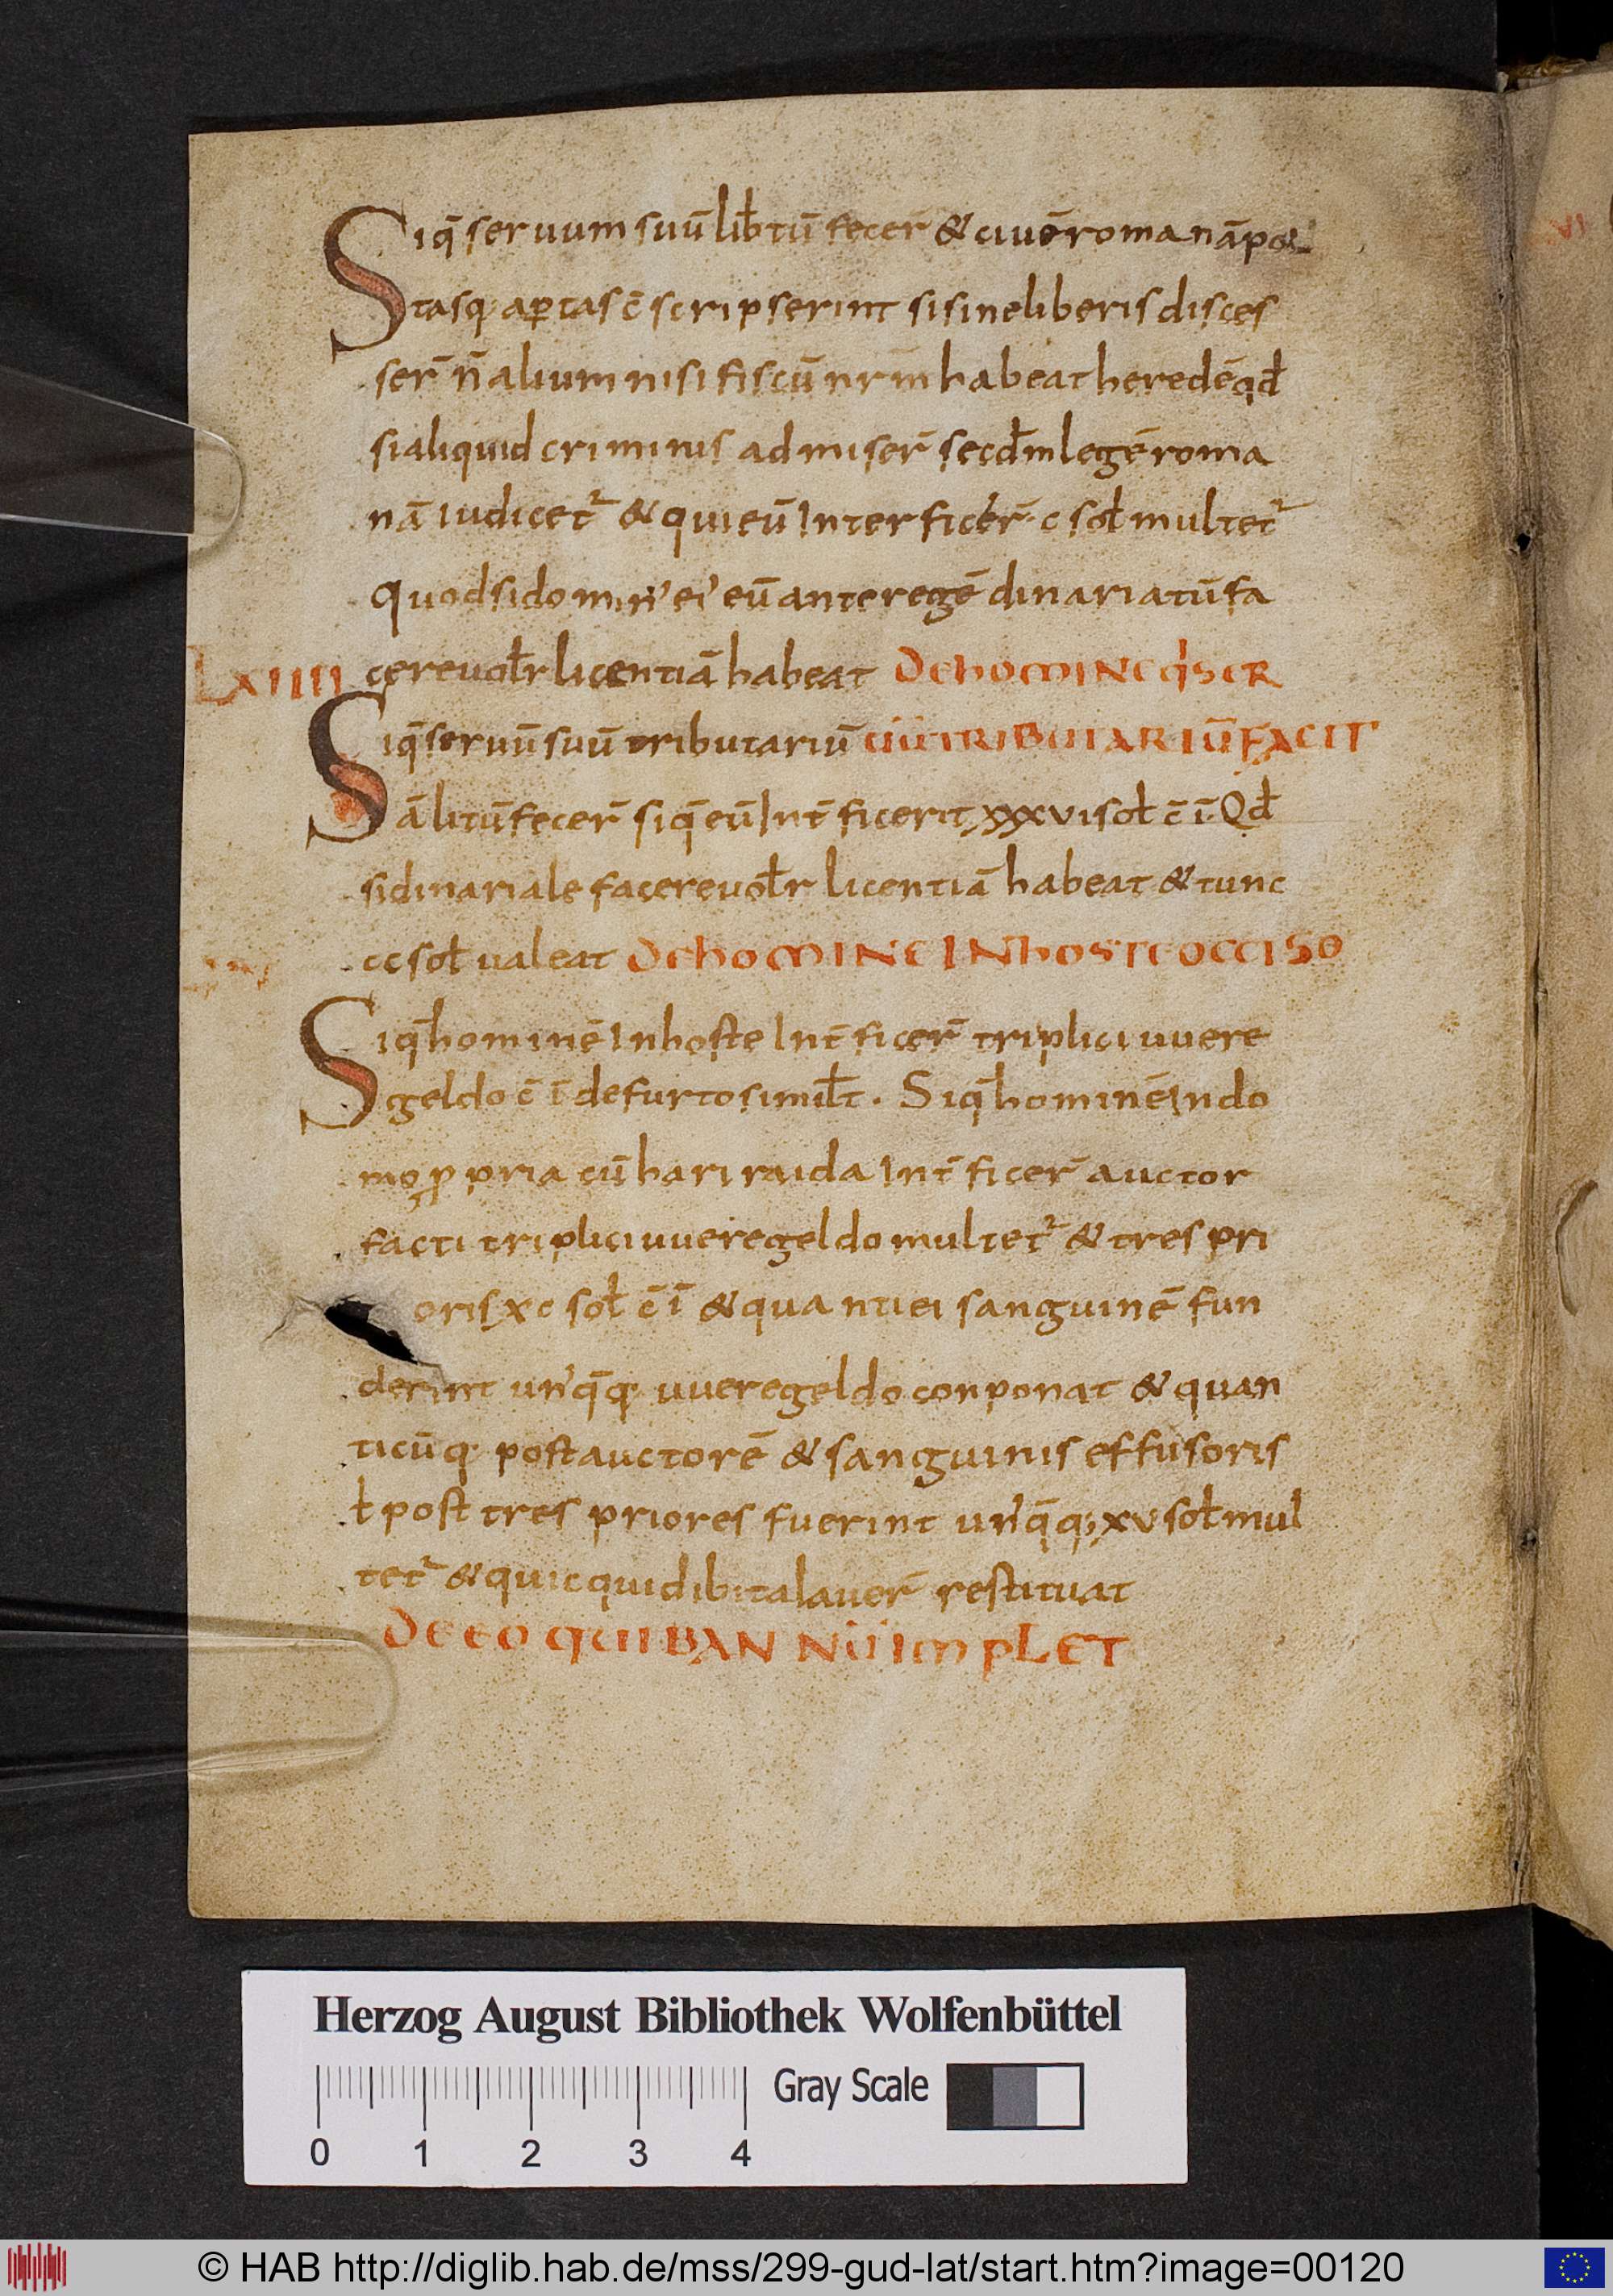 Siq̄ seruum suū lib̄tū fecer̄ & ciuē romanā por
tasq; aꝑtas c̄scripserint si sine liberis disces
ser̄ n̄ alium nisi fiscū nr̄m habeat heredē qd̄
si aliquid criminis admiser̄ secd̄m legē roma
nā iudicet᷑ & qui eū Interficer̄ · c sol̄ multet᷑
Quod si domin' ei' eū ante regē dinariatū fa
cere uol̄r licentiā habeat DE hOMINE q'SER
LXIIII
Siq̄ seruū suū tributariū UŪ TRIBUTARIŪ FACIT
ā litū fecer̄ siq̄ eū Int̄ficerit xxxvi sol̄ c̄ ī· Qd̄
si dinariale facere uol̄r licentiā habeat & tunc
cc sol̄ ualeat DE hOMINE IN hOSTE OCCISO
Siq̄ hominē In hoste Int̄ficer̄ triplici uuere
geldo c̄ ī de furto simil̄t · Siq̄ hominē In do
mo ꝓpria cū hariraida Int̄ficer̄ auctor
facti triplici uueregeldo multet᷑ & tres pri
oris xc sol̄ c̄ ī & quanti ei sanguinē fun
derint un'q̄q; uueregeldo conponat & quan
ticūq; post auctorē & sanguinis effusoris
ł post tres priores fuerint un'q̄q; xv sol̄ mul
tet᷑ & quicquid ibi talauer̄ restituat
DE EO QUI BANNŪ IMPLET
Herzog August Bibliothek Wolfenbüttel
Gray Scale
0 1 2 3 4
© HAB http://diglib.hab.de/mss/299-gud-lat/start.htm?image=00120